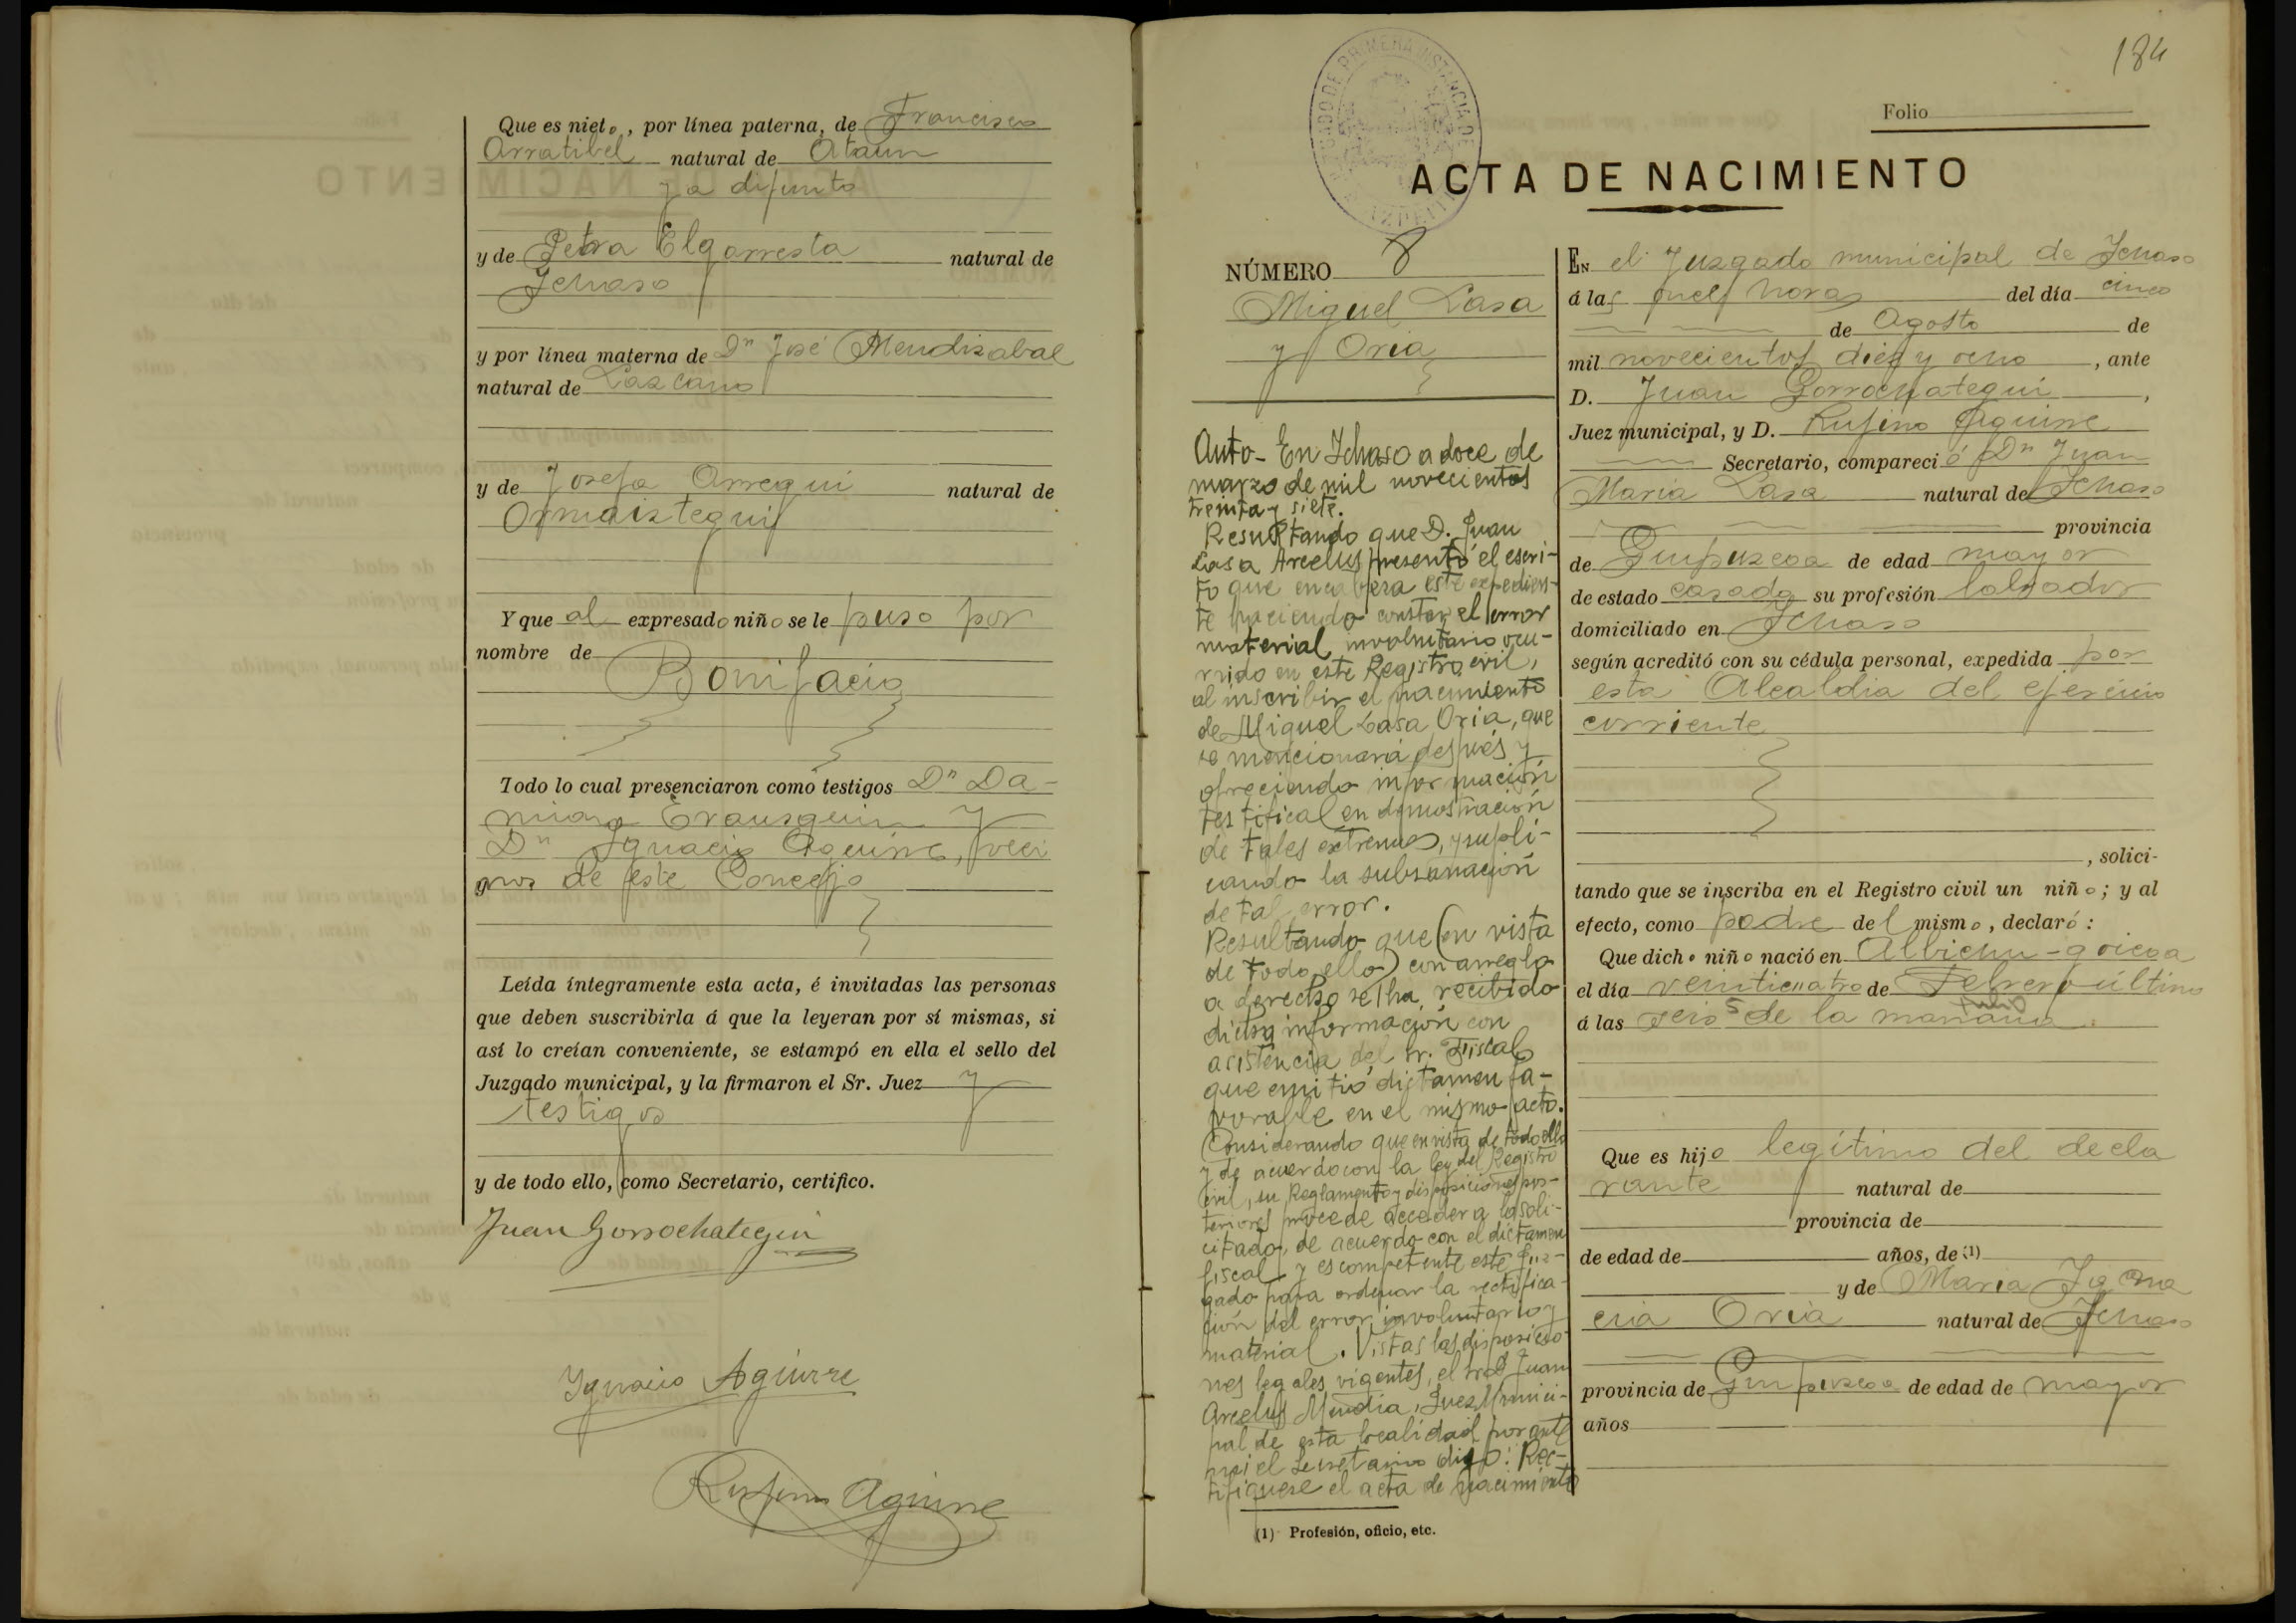 Que es nieto, por línea paterna, de Francisco
Arratibel natural de Ataun
ya difunto
y de Petra Elgarresta natural de
Ichaso
y por línea materna de Dn José Mendizabal
natural de Lazcano
y de Josefa Arregui natural de
Ormaiztegui
Y que al expresado niño se le puso por
nombre de
Bonifacio
Todo lo cual presenciaron como testigos Dn Da-
miano Erausquin y
Dn Ignacio Aguirre, veci
nos de este Concejo
Leída íntegramente esta acta, é invitadas las personas
que deben suscribirla á que la leyeran por sí mismas, si
así lo creían conveniente, se estampó en ella el sello del
Juzgado municipal, y la firmaron el Sr. Juez y
testigos
y de todo ello, como Secretario, certifico.
Juan Gorrochategui
Ygnacio Aguirre
Rufino Aguirre
184
Folio
JUZGADO DE PRIMERA INSTANCIA DE
AZPEITIA
ACTA DE NACIMIENTO
NÚMERO 8
Miguel Lasa
y Oria
Auto- En Ichaso a doce de
marzo de mil novecientos
treinta y siete.
Resultando que D. Juan
Lasa Arcelus presentó el escri-
to que encabeza este expedien-
te haciendo constar el error
material involuntario ocu-
rrido en este Registro civil,
al inscribir el nacimiento
de Miguel Lasa Oria, que
se mencionará después y
ofreciendo información
testifical en demostración
de tales extremos, y supli-
cando la subsanación
de tal error.
Resultando que (en vista
de todo ello) con arreglo
a derecho se ha recibido
dicha información con
asistencia del Sr. Fiscal
que emitió dictamen fa-
vorable en el mismo acto.
Considerando que en vista de todo ello
y de acuerdo con la ley del Registro
civil, su Reglamento y disposiciones pos-
teriores procede acceder a lo soli-
citado, de acuerdo con el dictamen
fiscal y es competente este Juz-
gado para ordenar la rectifica-
ción del error involuntario y
material. Vistas las disposicio-
nes legales vigentes, el Sr. D. Juan
Arcelus Mendia, Juez Munici-
pal de esta localidad por ante
mi el Secretario dijo: Rec-
tifíquese el acta de nacimiento
(1) Profesión, oficio, etc.
En el Juzgado municipal de Ichaso
á las nuef horas del día cinco
de Agosto de
mil novecientos diez y ocho, ante
D. Juan Gorrochategui,
Juez municipal, y D. Rufino Aguirre
Secretario, compareció Dn Juan
Maria Lasa natural de Ichaso
provincia
de Guipuzcoa de edad mayor
de estado casado su profesión labrador
domiciliado en Ichaso
según acreditó con su cédula personal, expedida por
esta Alcaldia del ejercicio
corriente
, solici-
tando que se inscriba en el Registro civil un niño; y al
efecto, como padre del mismo, declaró:
Que dicho niño nació en Albichu-goicoa
el día veinticuatro de Febrero último
Julio
á las seis 5 de la mañana.
Que es hijo legítimo del decla
rante natural de
provincia de
de edad de años, de (1)
y de Maria Igna
cia Oria natural de Ichaso
provincia de Guipuzcoa de edad de mayor
años